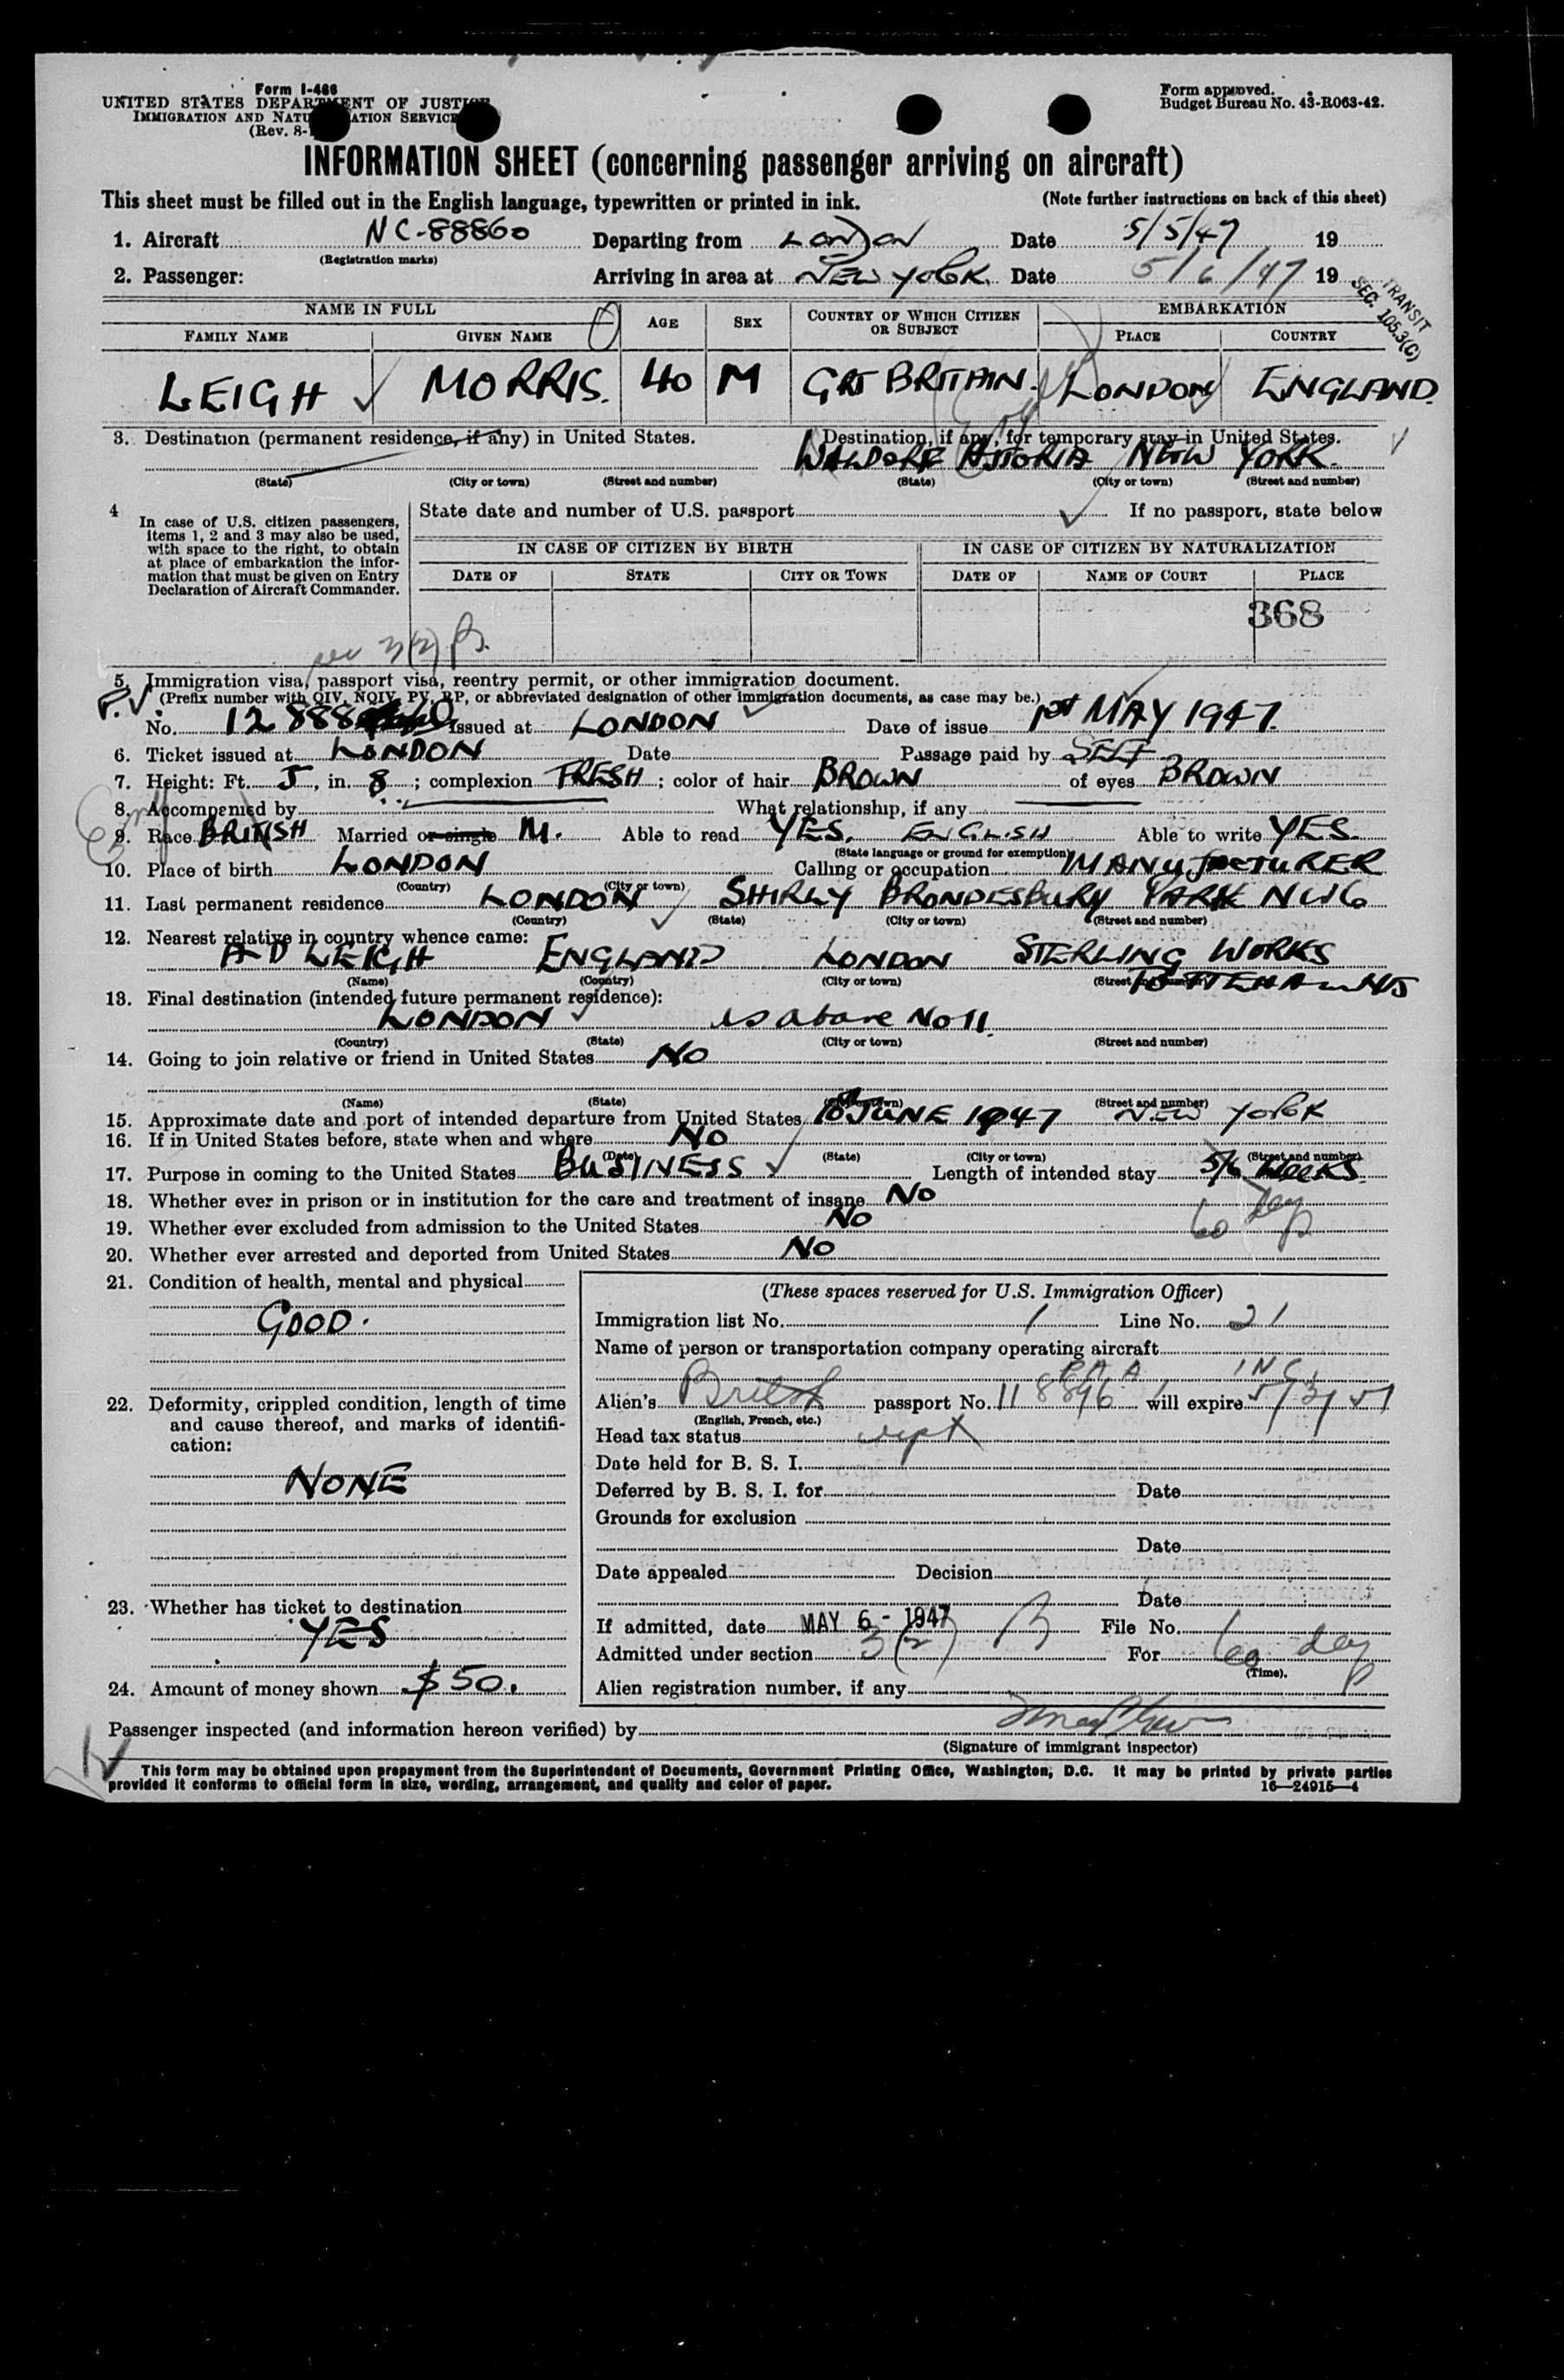 Form I-466
UNITED STATES DEPARTMENT OF JUSTICE
IMMIGRATION AND NATURALIZATION SERVICE
(Rev. 8-
Form approved.
Budget Bureau No. 43-R063-42.
INFORMATION SHEET (concerning passenger arriving on aircraft)
This sheet must be filled out in the English language, typewritten or printed in ink. (Note further instructions on back of this sheet)
1. Aircraft NC-88860 Departing from LONDON Date 5/5/47 19
(Registration marks)
2. Passenger: Arriving in area at NEW YORK. Date 5/6/47 19
TRANSIT
SEC. 105.3(C)
NAME IN FULL AGE SEX COUNTRY OF WHICH CITIZEN OR SUBJECT EMBARKATION
FAMILY NAME GIVEN NAME PLACE COUNTRY
LEIGH MORRIS. 40 M GRT BRITAIN. LONDON ENGLAND.
3. Destination (permanent residence, if any) in United States. Destination, if any, for temporary stay in United States.
WALDORF ASTORIA NEW YORK.
(State) (City or town) (Street and number) (State) (City or town) (Street and number)
4 In case of U.S. citizen passengers, items 1, 2 and 3 may also be used, with space to the right, to obtain at place of embarkation the information that must be given on Entry Declaration of Aircraft Commander.
State date and number of U.S. passport If no passport, state below
IN CASE OF CITIZEN BY BIRTH IN CASE OF CITIZEN BY NATURALIZATION
DATE OF STATE CITY OR TOWN DATE OF NAME OF COURT PLACE
368
3(2)
5. Immigration visa, passport visa, reentry permit, or other immigration document.
(Prefix number with QIV, NQIV, PV, RP, or abbreviated designation of other immigration documents, as case may be.)
P.V. No. 12888 Issued at LONDON Date of issue 1st MAY 1947.
6. Ticket issued at LONDON Date Passage paid by SELF
7. Height: Ft. 5, in. 8; complexion FRESH; color of hair BROWN of eyes BROWN
8. Accompenied by What relationship, if any
9. Race BRITISH Married or single M. Able to read YES. ENGLISH Able to write YES.
(State language or ground for exemption)
10. Place of birth LONDON Calling or occupation MANUFACTURER
(Country) (City or town)
11. Last permanent residence LONDON SHIRLY BRONDESBURY PARK NW6
(Country) (State) (City or town) (Street and number)
12. Nearest relative in country whence came:
A D LEIGH ENGLAND LONDON STERLING WORKS
(Name) (Country) (City or town) (Street and number)
13. Final destination (intended future permanent residence):
LONDON as above No 11.
(Country) (State) (City or town) (Street and number)
14. Going to join relative or friend in United States NO
(Name) (State) (City or town) (Street and number)
15. Approximate date and port of intended departure from United States 10th JUNE 1947 NEW YORK
16. If in United States before, state when and where NO
(Date) (State) (City or town) (Street and number)
17. Purpose in coming to the United States BUSINESS Length of intended stay 5/6 WEEKS.
60 days
18. Whether ever in prison or in institution for the care and treatment of insane NO
19. Whether ever excluded from admission to the United States NO
20. Whether ever arrested and deported from United States NO
21. Condition of health, mental and physical
GOOD.
22. Deformity, crippled condition, length of time and cause thereof, and marks of identification:
NONE
23. Whether has ticket to destination
YES
24. Amount of money shown $50.
(These spaces reserved for U.S. Immigration Officer)
Immigration list No. 1 Line No. 21
Name of person or transportation company operating aircraft
P A A INC
Alien's British passport No. 118896 will expire 5/3/51
(English, French, etc.)
Head tax status
Date held for B. S. I.
Deferred by B. S. I. for Date
Grounds for exclusion
Date
Date appealed Decision
Date
If admitted, date MAY 6 - 1947 File No.
Admitted under section 3(2) B For 60 days
(Time).
Alien registration number, if any
Passenger inspected (and information hereon verified) by
(Signature of immigrant inspector)
This form may be obtained upon prepayment from the Superintendent of Documents, Government Printing Office, Washington, D.C. It may be printed by private parties
provided it conforms to official form in size, wording, arrangement, and quality and color of paper. 16—24915-4